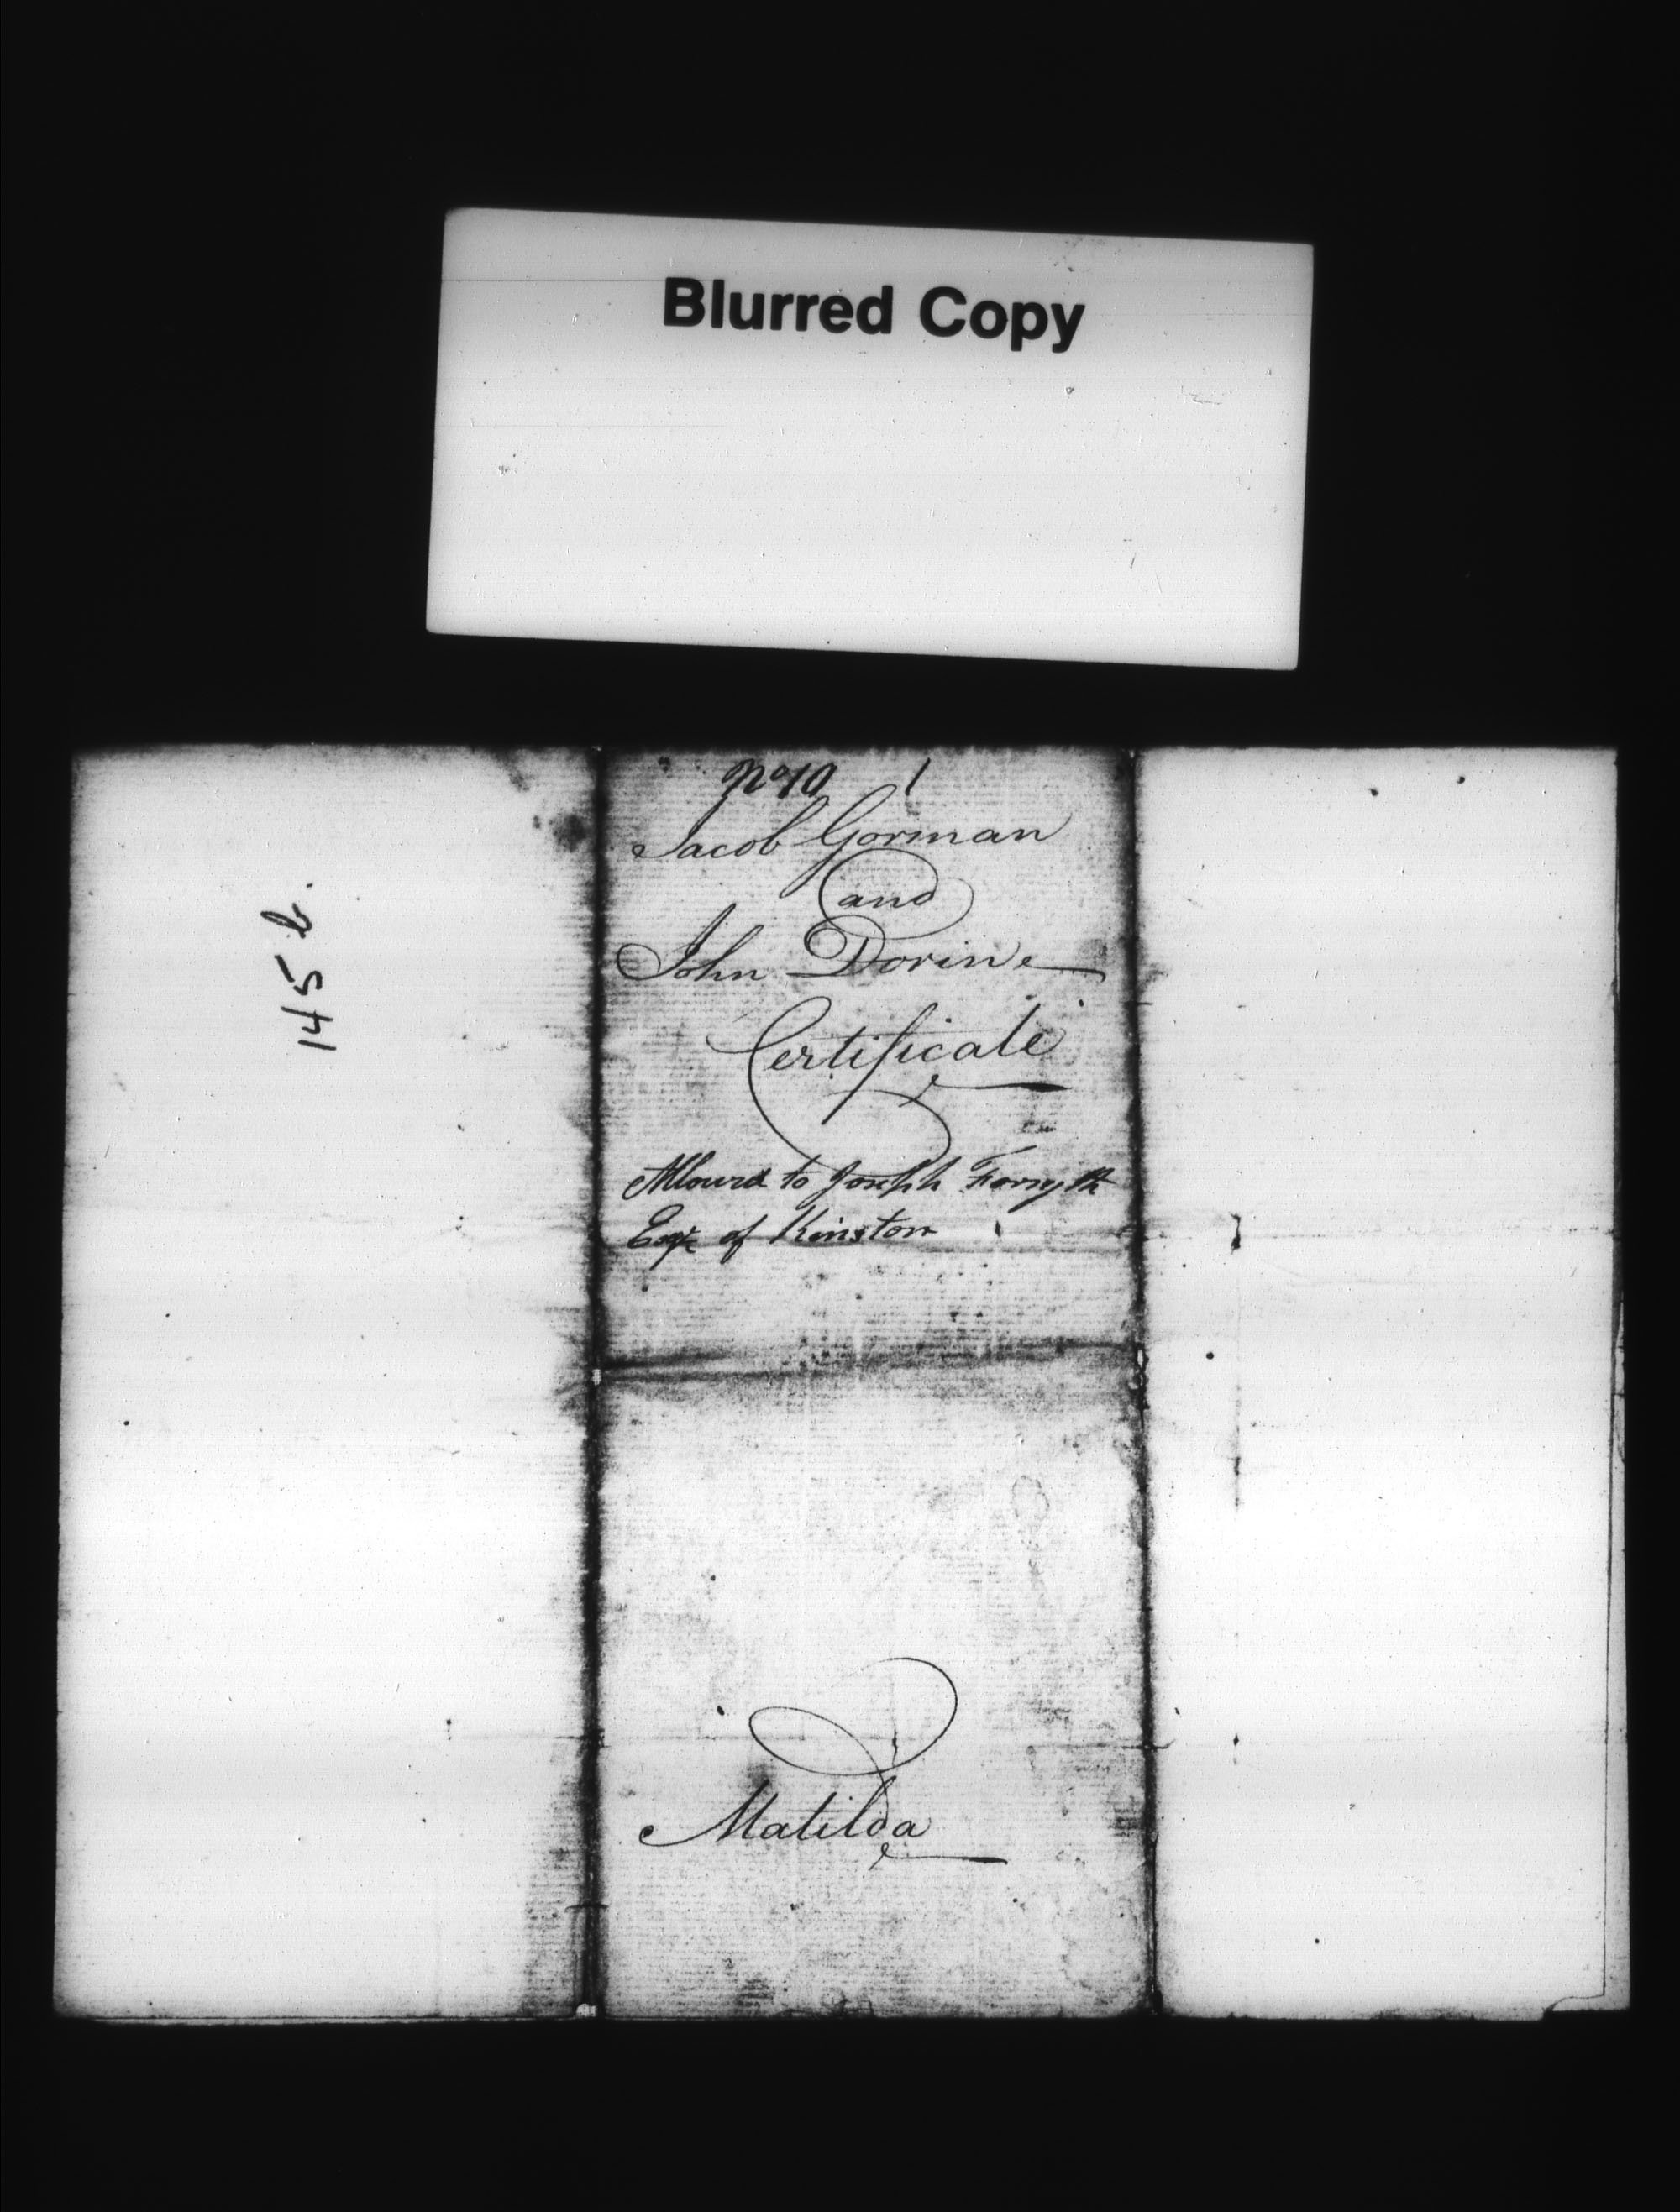 Blurred Copy
No 10 1
Jacob Gorman
and
John Dorine
Certificate
Allowed to Joseph Forsyth
Esqr of Kinston
145 b.
Matilda